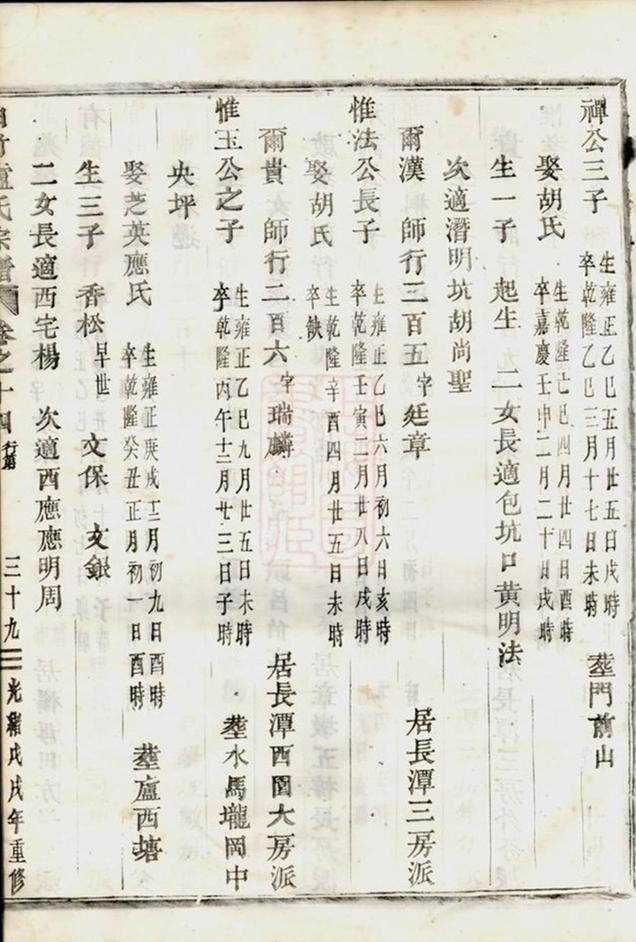 禪公三子 生雍正乙巳五月廿五日戌時 𦵏門前山
卒乾隆乙巳三月十七日未時
娶胡氏 生乾隆亡巳四月廿四日酉時
卒嘉慶壬申二月二十日戌時
生一子 起生 二女長適包坑口黃明法
次適潛明坑胡尚聖
爾漢 師行三百五字廷章 居長潭三房派
惟法公長子 生雍正乙巳六月初六日亥時
卒乾隆壬寅二月廿八日戌時
娶胡氏 生乾隆辛酉四月廿五日未時
卒缺
爾貴 師行二百六字瑞麟 居長潭西園大房派
惟玉公之子 生雍正乙巳九月廿五日未時 𦵏水馬壠岡中
卒乾隆丙午十二月廿三日子時
央坪
娶芝英應氏 生雍正庚戌十二月初九日酉時 𦵏廬西塘
卒乾隆癸丑正月初一日酉時
生三子 香松早世 文保 文銀
二女長適西宅楊 次適西應應明周
盧氏宗譜 卷之十四 行第 三十九 光緒戊戌年重修